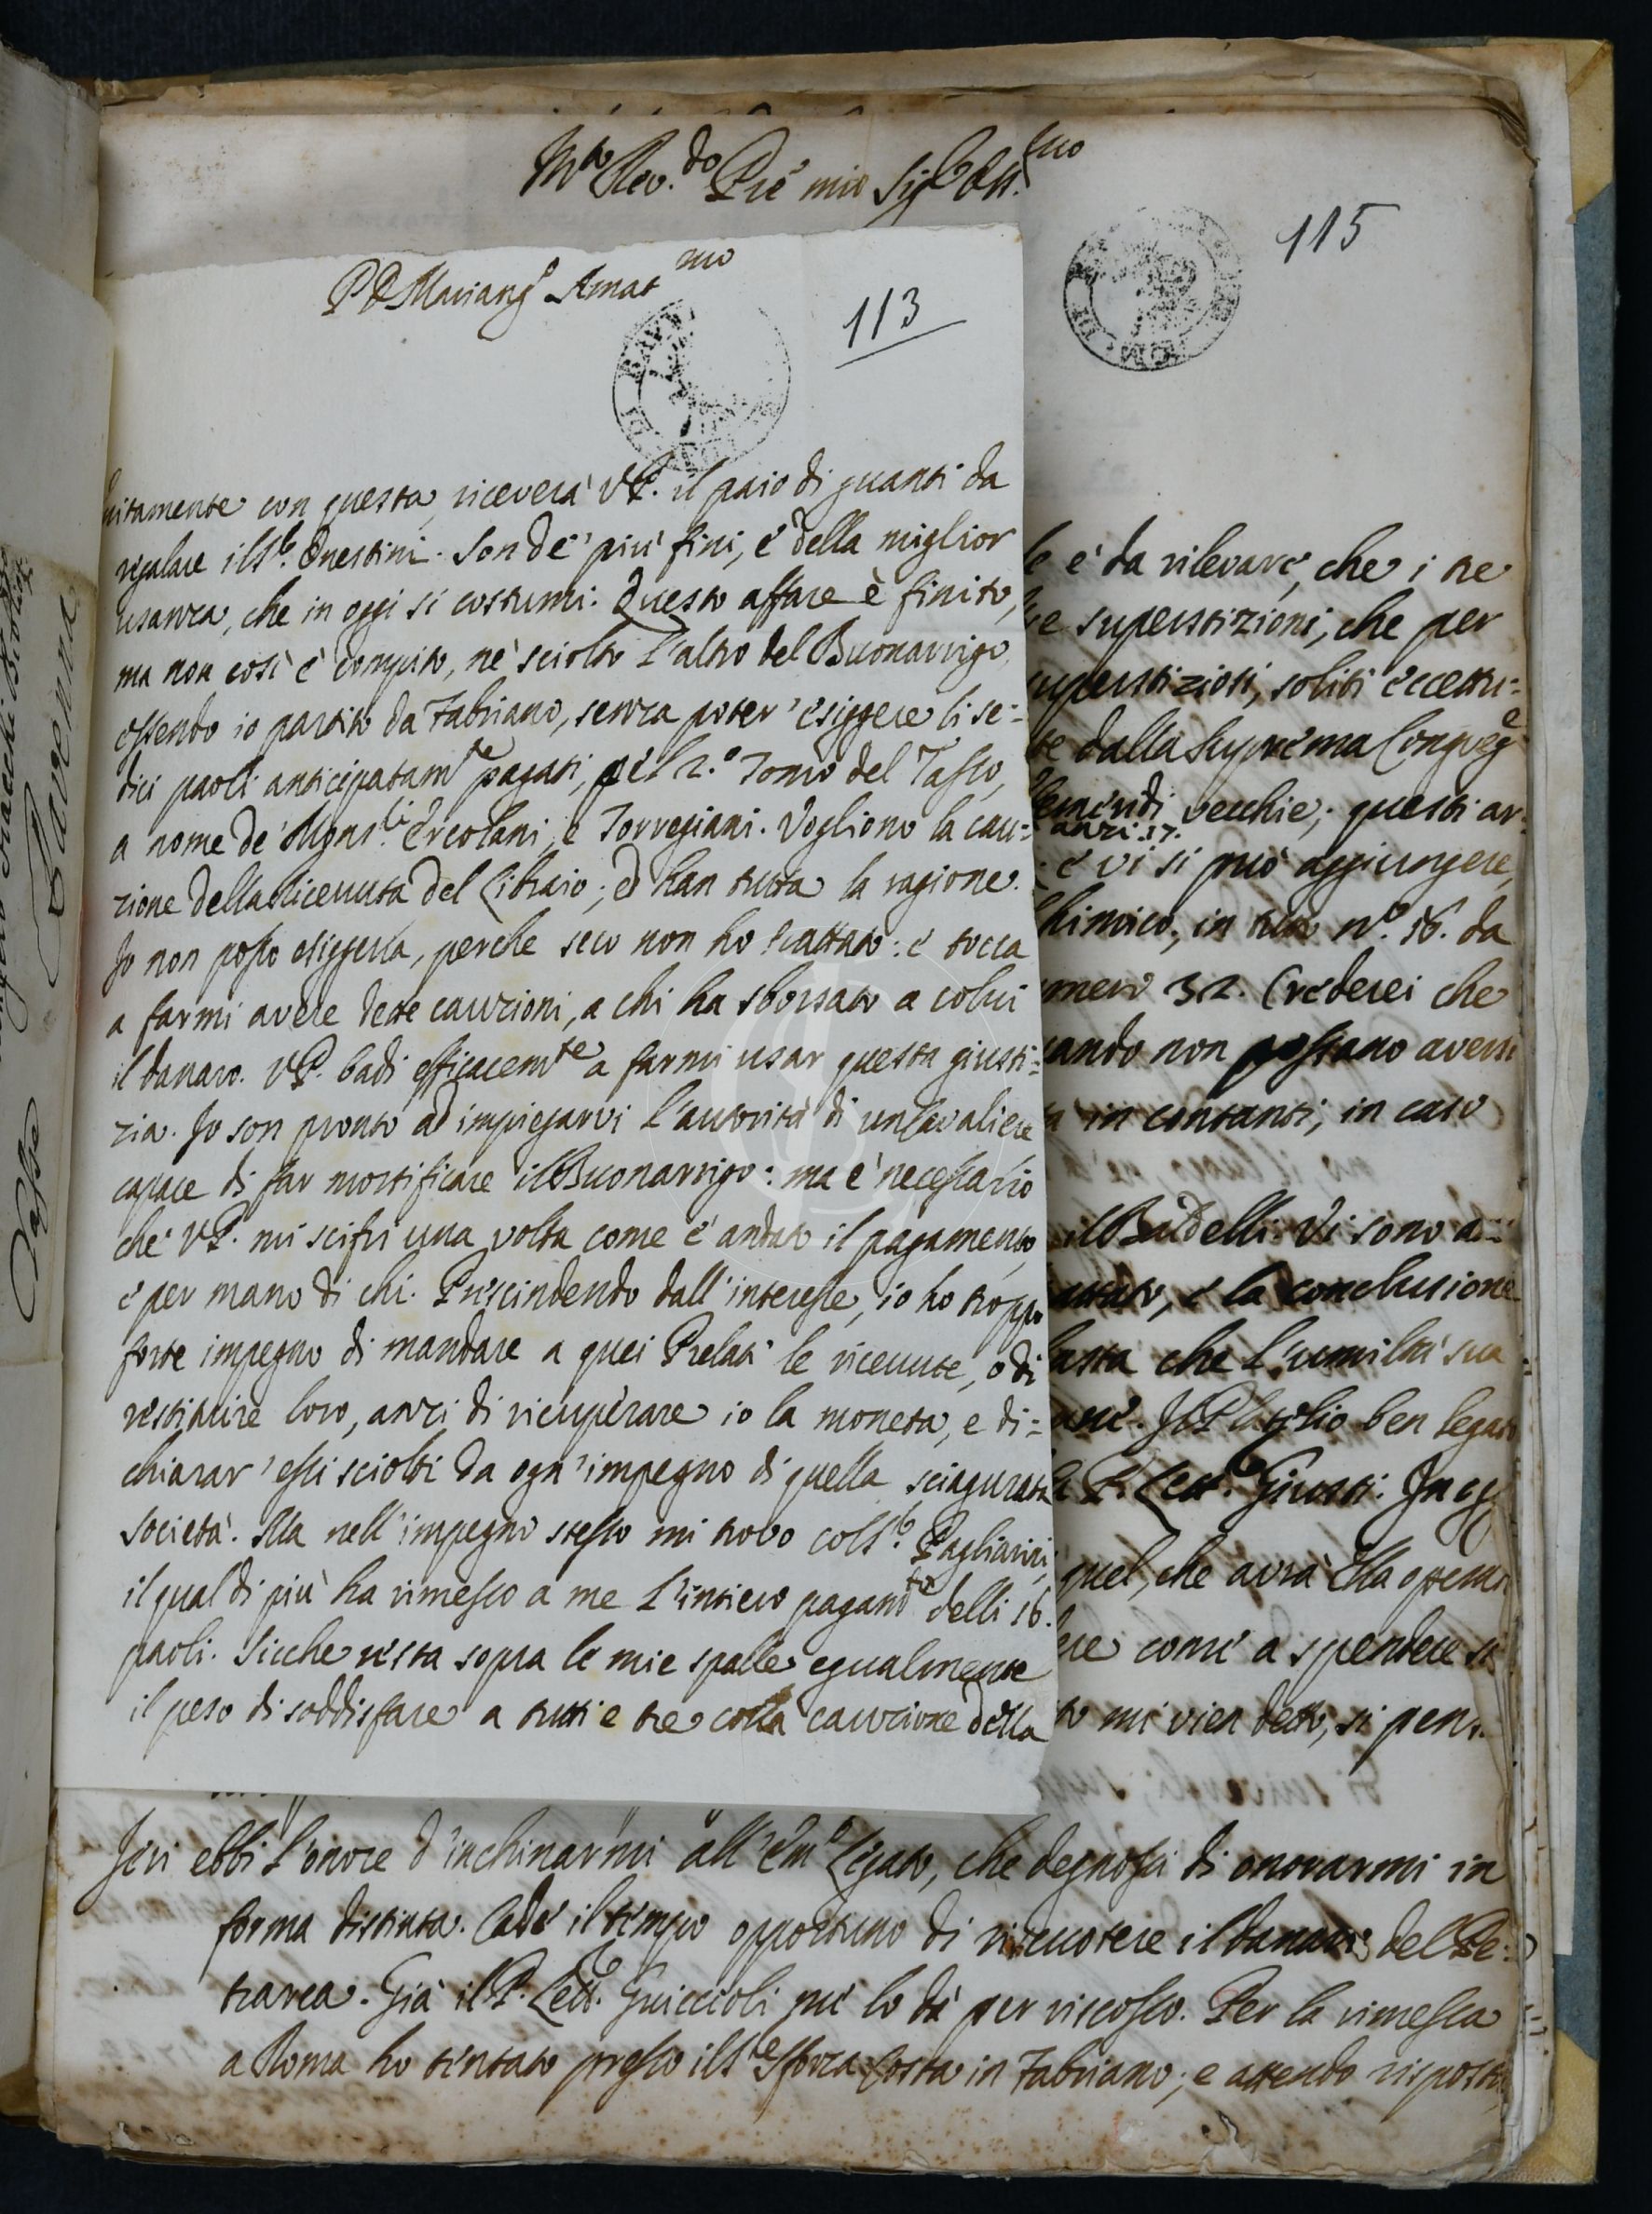 M.to Rev.do Pre mio Sig.
115
P D Mariang.o Amat.mo
113
unitamente con questa, riceverà V.P. il paio di guanti da
regalare il S.r Onestini. Son de' più fini, e della miglior
usanza, che in oggi si costumi. Questo affare è finito,
ma non così è compito, nè sciolto l'altro del Buonarrigo,
essendo io partito da Fabriano, senza poter' esiggere li se=
dici paoli anticipatam.te pagati, pel 2.o Tomo del Tasso,
a nome de' Mons.ri Ercolani, e Torregiani. Vogliono la cau=
zione della ricevuta del Libraio; ed han tutta la ragione.
Io non posso esiggerla, perche seco non ho trattato: e tocca
a farmi avere dette cauzioni, a chi ha sborsato a colui
il danaro. V.P. badi efficacem.te a farmi usar questa giusti=
zia. Io son pronto ad impiegarvi l'autorità di un Cavaliere
capace di far mortificare il Buonarrigo: ma è necessario
che V.P. mi scifri una volta come è andato il pagamento,
e per mano di chi. Prescindendo dall'interesse, io ho troppo
forte impegno di mandare a quei Prelati le ricevute, o di
restituire loro, anzi di ricuperare io la moneta, e di=
chiarar' essi sciolti da ogn'impegno di quella sciagurata
società. Ma nell'impegno stesso mi trovo col S.r Pagliarini,
il qual di più ha rimesso a me l'intiero pagam.to delli 16.
paoli. Sicche resta sopra le mie spalle egualmente
il peso di soddisfare a tutti e tre colla cauzione della
è da rilevare, che i tre
superstizioni, che per
superstiziosi, soliti eccettu=
dalla Suprema Congreg.e
vecchie; questi ar=
anzi 17.
e vi si può aggiungere,
himico, in tutto n.o 16. da
numero 32. Crederei che
quando non possano aversi
in contanti, in caso
il Baldelli. Vi sono a=
e la conclusione
basta che l'umiltà sua
ben legato
P. Lett.e Giusti. In
quel, che avrà Ella
come a spendere si
mi vien detto, si pens
Jeri ebbi l'onore d'inchinarmi all'Em.o Legato, che degnossi di onorarmi in
forma distinta. Cade il tempo opportuno di riscuotere il danaro del Pe=
trarca. Già il P. Lett.e Guiccioli me lo dà per riscosso. Per la rimessa
a Roma ho tentato presso il S.re Sforza Costa in Fabriano; e attendo risposta
Ravenna